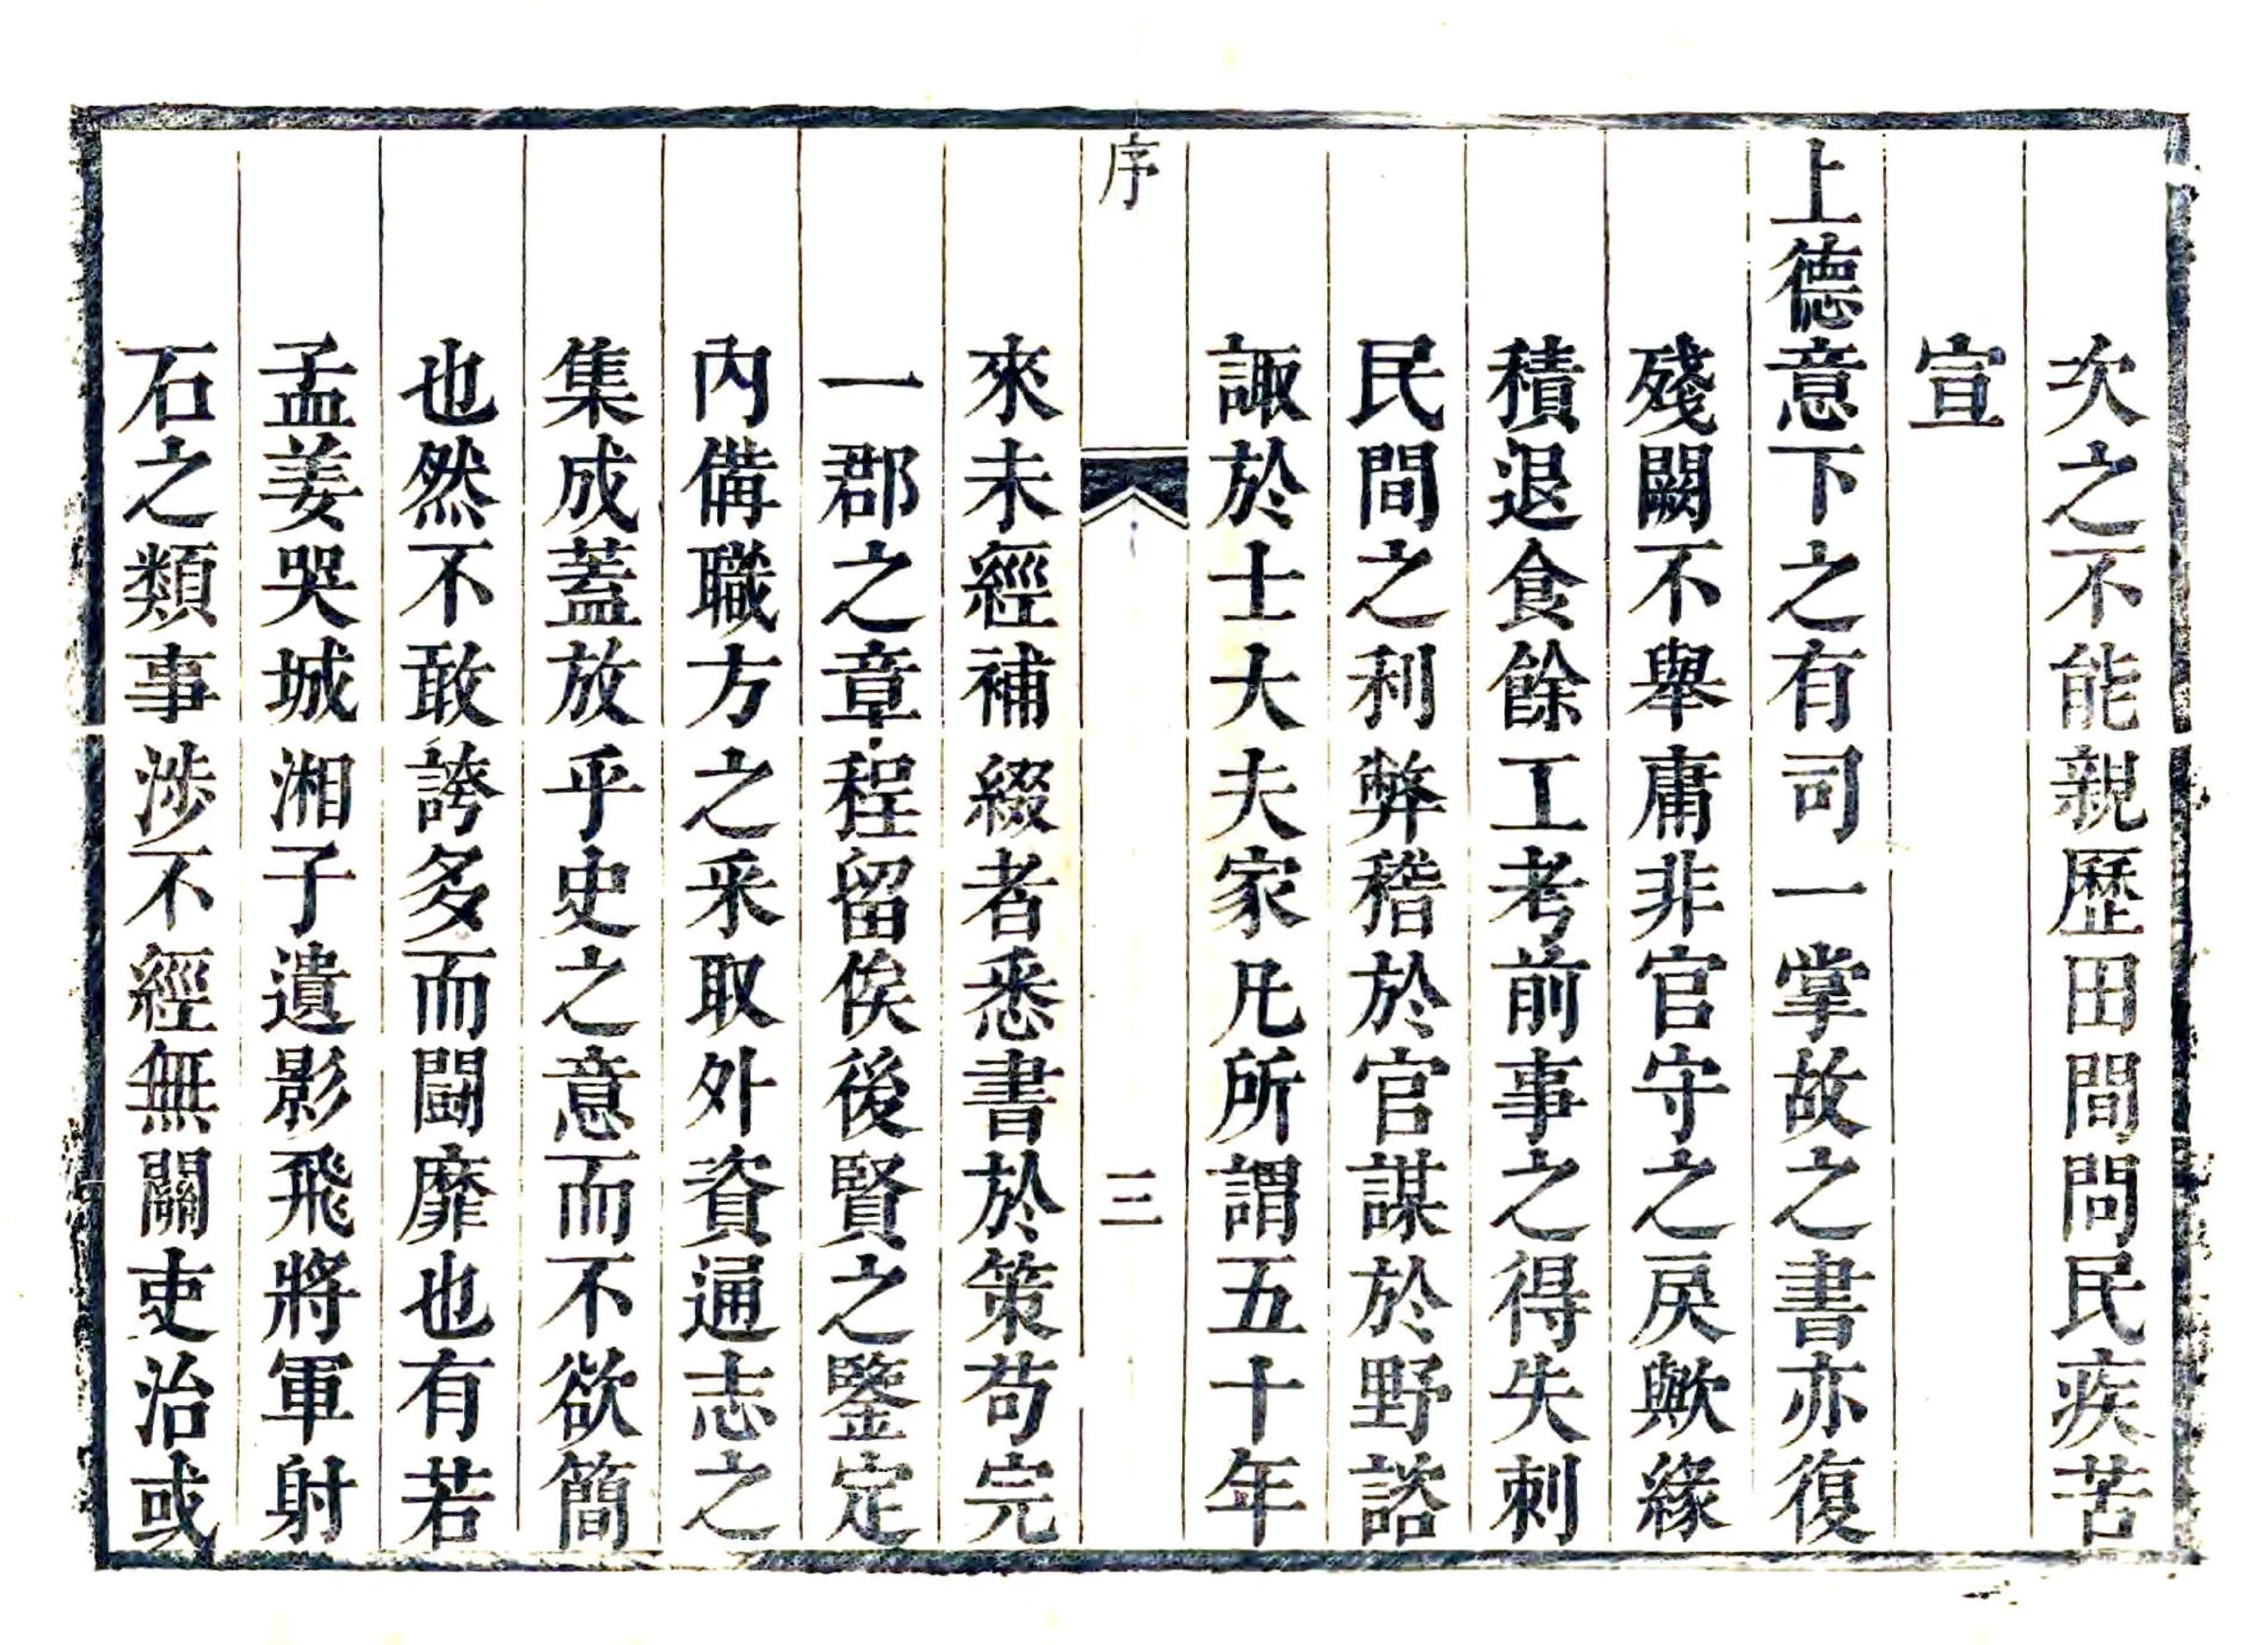 次之不能親歷田間問民疾苦
宣
上德意下之有司一掌故之書亦復
殘闕不舉庸非官守之戾歟緣
積退食餘工考前事之得失刺
民間之利弊稽於官謀於野諮
諏於士大夫家凡所謂五十年
序
三
來未經補綴者悉書於策苟完
一郡之章程留俟後賢之鑒定
內備職方之采取外資通志之
集成蓋放乎史之意而不欲簡
也然不敢誇多而鬪靡也有若
孟姜哭城湘子遺影飛將軍射
石之類事涉不經無關吏治或